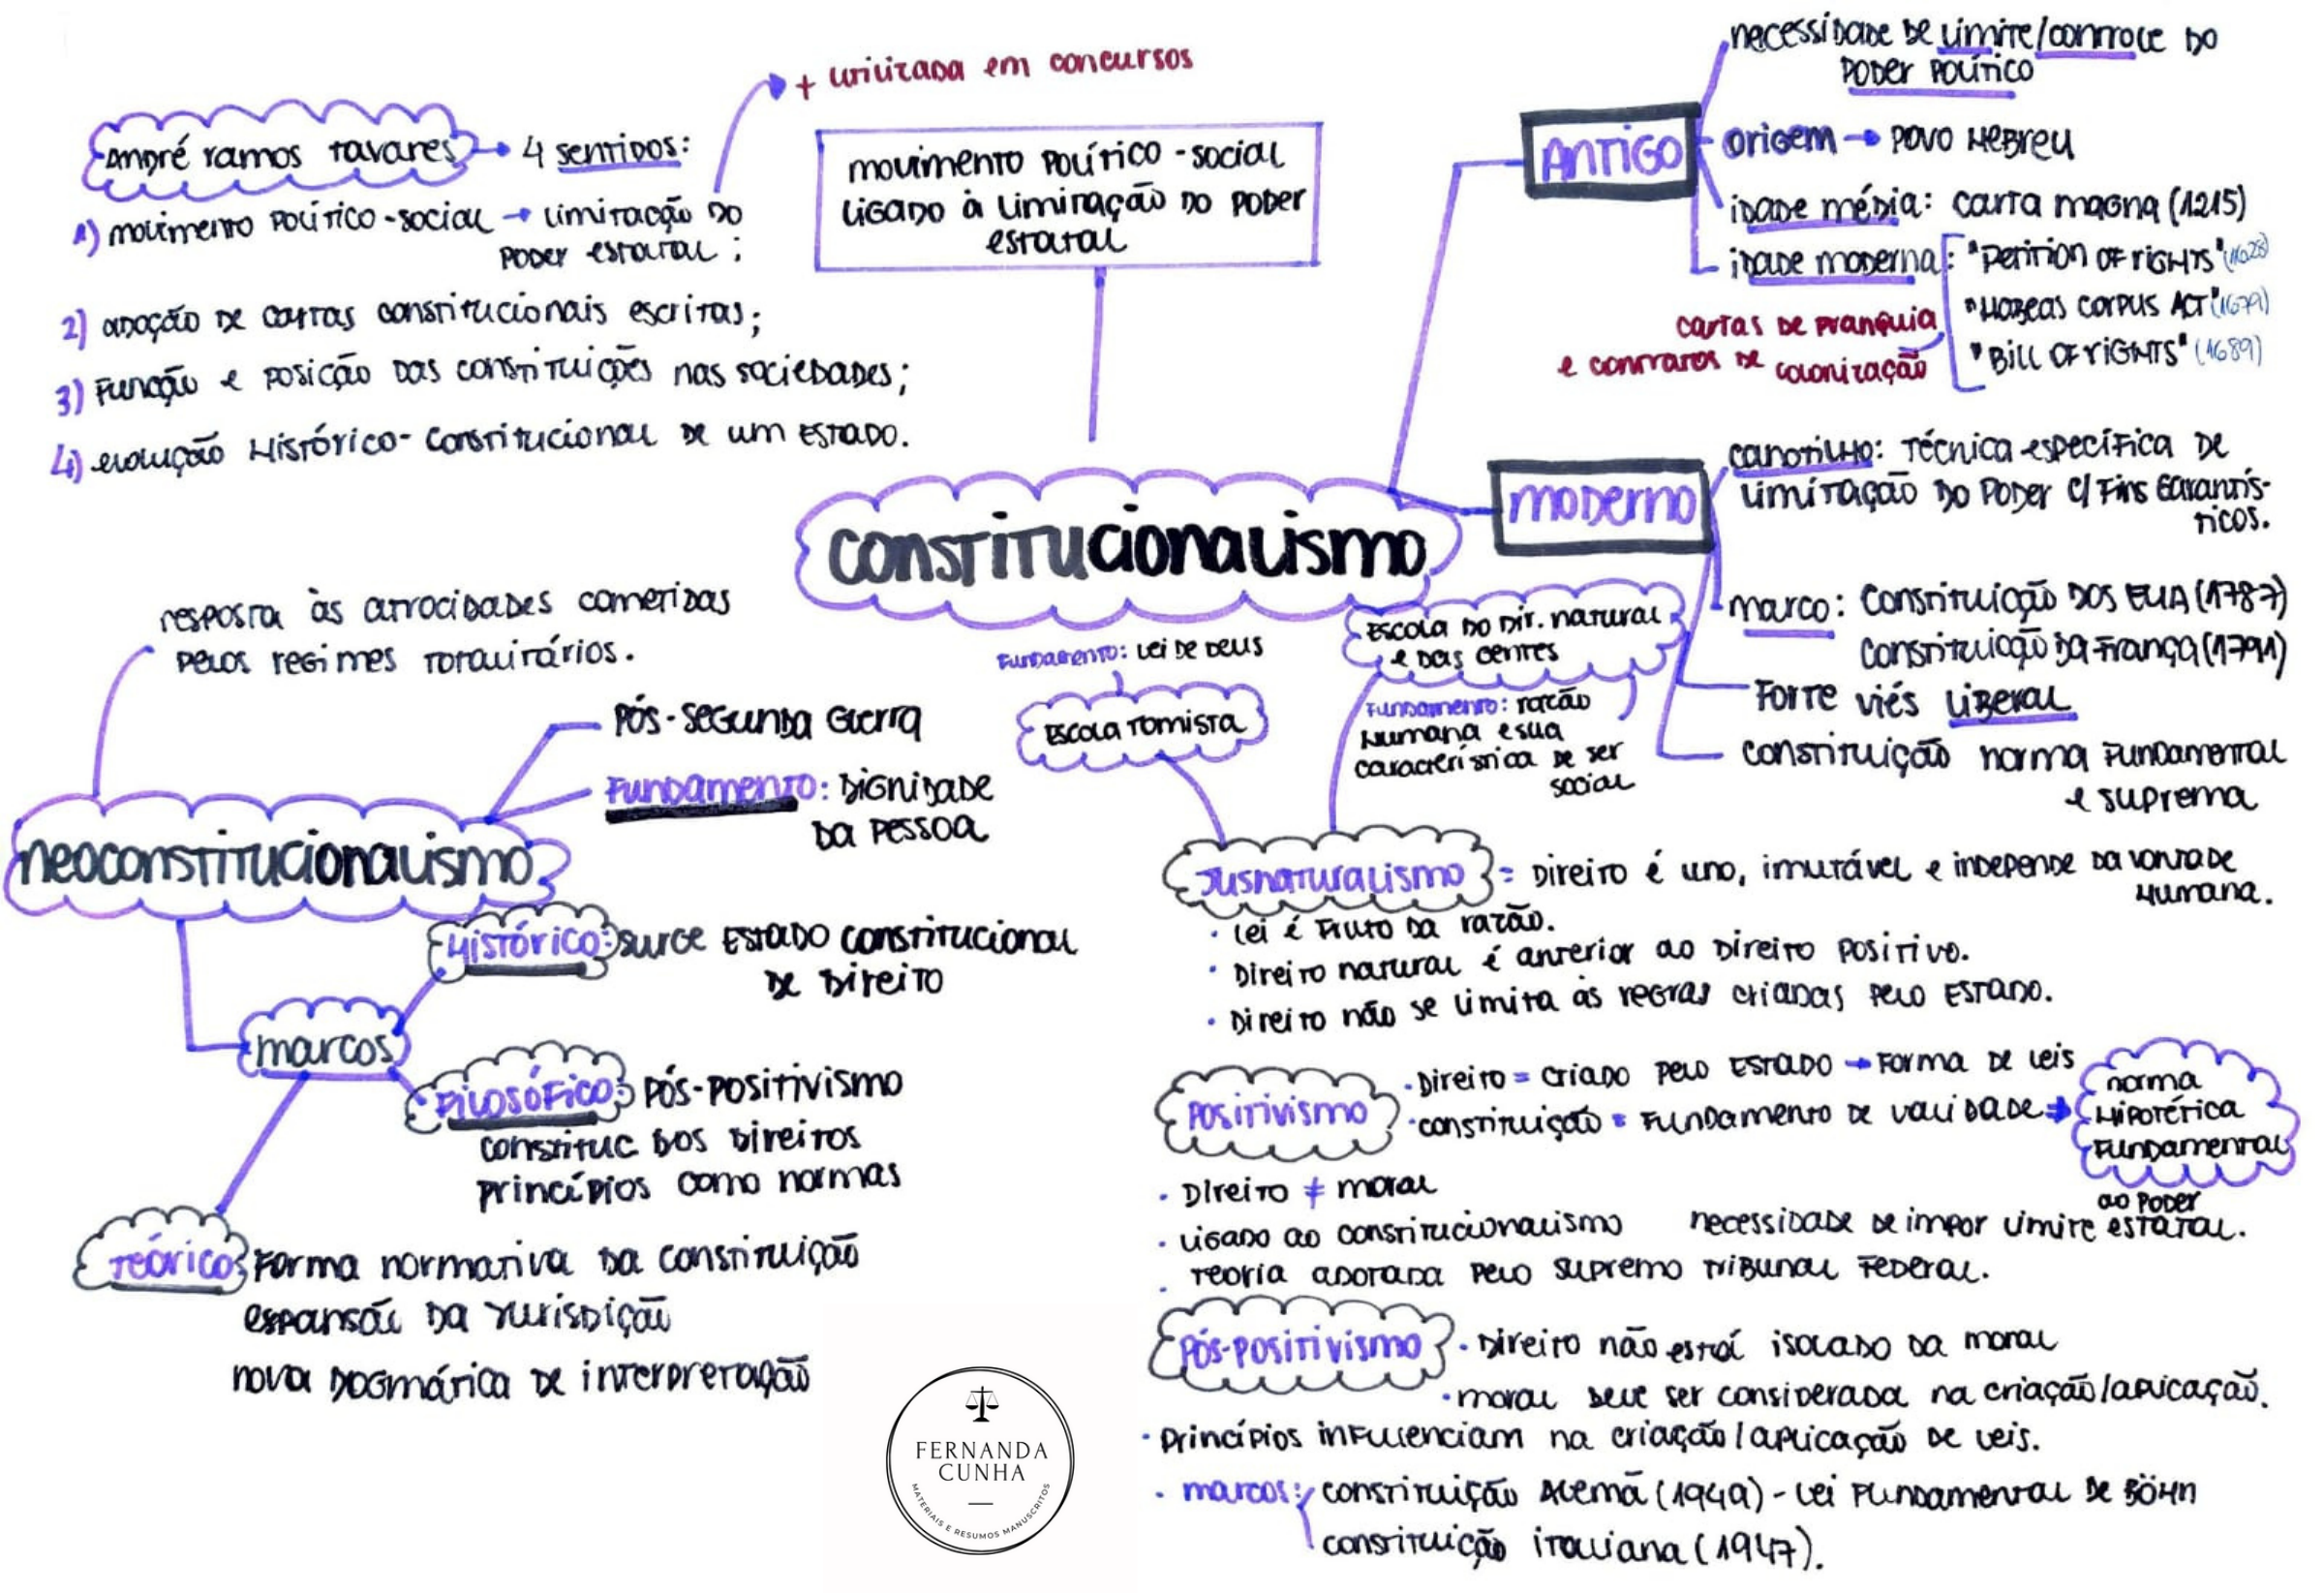 + utilizada em concursos
André Ramos Tavares → 4 sentidos:
1) movimento político-social → limitação do
poder estatal;
2) adoção de cartas constitucionais escritas;
3) Função e posição das constituições nas sociedades;
4) evolução Histórico-constitucional de um Estado.
movimento político-social
ligado à limitação do poder
estatal
Constitucionalismo
ANTIGO
necessidade de limite/controle do
poder político
origem → povo Hebreu
idade média: Carta magna (1215)
idade moderna: "Petition of rights" (1628)
"Habeas corpus Act" (1679)
"Bill of rights" (1689)
cartas de franquia
e contratos de colonização
moderno
canotilho: Técnica específica de
limitação do poder c/ fins garantís-
ticos.
marco: Constituição dos EUA (1787)
Constituição da França (1791)
Forte viés liberal
constituição norma fundamental
e suprema
resposta às atrocidades cometidas
pelos regimes totalitários.
Pós-segunda guerra
Fundamento: Dignidade
da pessoa
neoconstitucionalismo
marcos
Histórico: surge Estado constitucional
de Direito
Filosófico: pós-positivismo
constituc dos direitos
princípios como normas
Teórico: Forma normativa da constituição
expansão da jurisdição
nova dogmática de interpretação
Fundamento: Lei de Deus
Escola Tomista
Escola do Dir. natural
e das gentes
Fundamento: razão
humana e sua
característica de ser
social
Jusnaturalismo = Direito é uno, imutável e independe da vontade
humana.
· Lei é fruto da razão.
· Direito natural é anterior ao Direito positivo.
· Direito não se limita às regras criadas pelo Estado.
Positivismo
· Direito = criado pelo Estado → forma de leis
· constituição = fundamento de validade ⇒
norma
Hipotética
Fundamental
· Direito ≠ moral
· Ligado ao constitucionalismo necessidade de impor limite ao poder estatal.
· Teoria adotada pelo Supremo Tribunal Federal.
Pós-positivismo
· Direito não está isolado da moral
· moral deve ser considerada na criação/aplicação.
· Princípios influenciam na criação/aplicação de leis.
· marcos: constituição Alemã (1949) - Lei Fundamental de Böhn
constituição italiana (1947).
FERNANDA
CUNHA
MATERIAIS E RESUMOS MANUSCRITOS